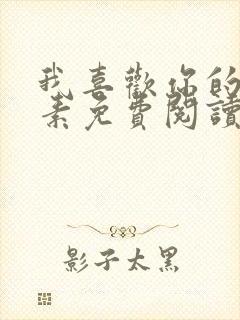 我喜歡你的
素免費閱讀
影子太黑